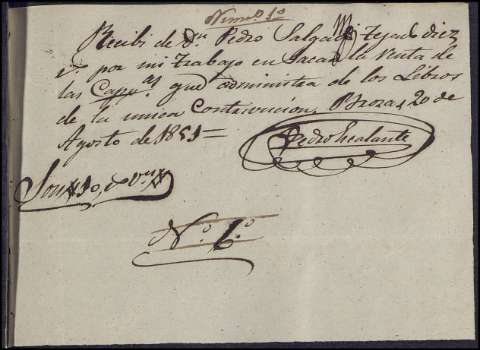 Numº 1º
Recibi de Dn Pedro Salgado y Tejado diez
rs por mi trabajo en sacar la renta de
las Cappas que administra de los Libros
de la unica Contribucion. Brozas, 20 de
Agosto de 1851=
Pedro Escalante
Son 10, rs vn
Nº 6º